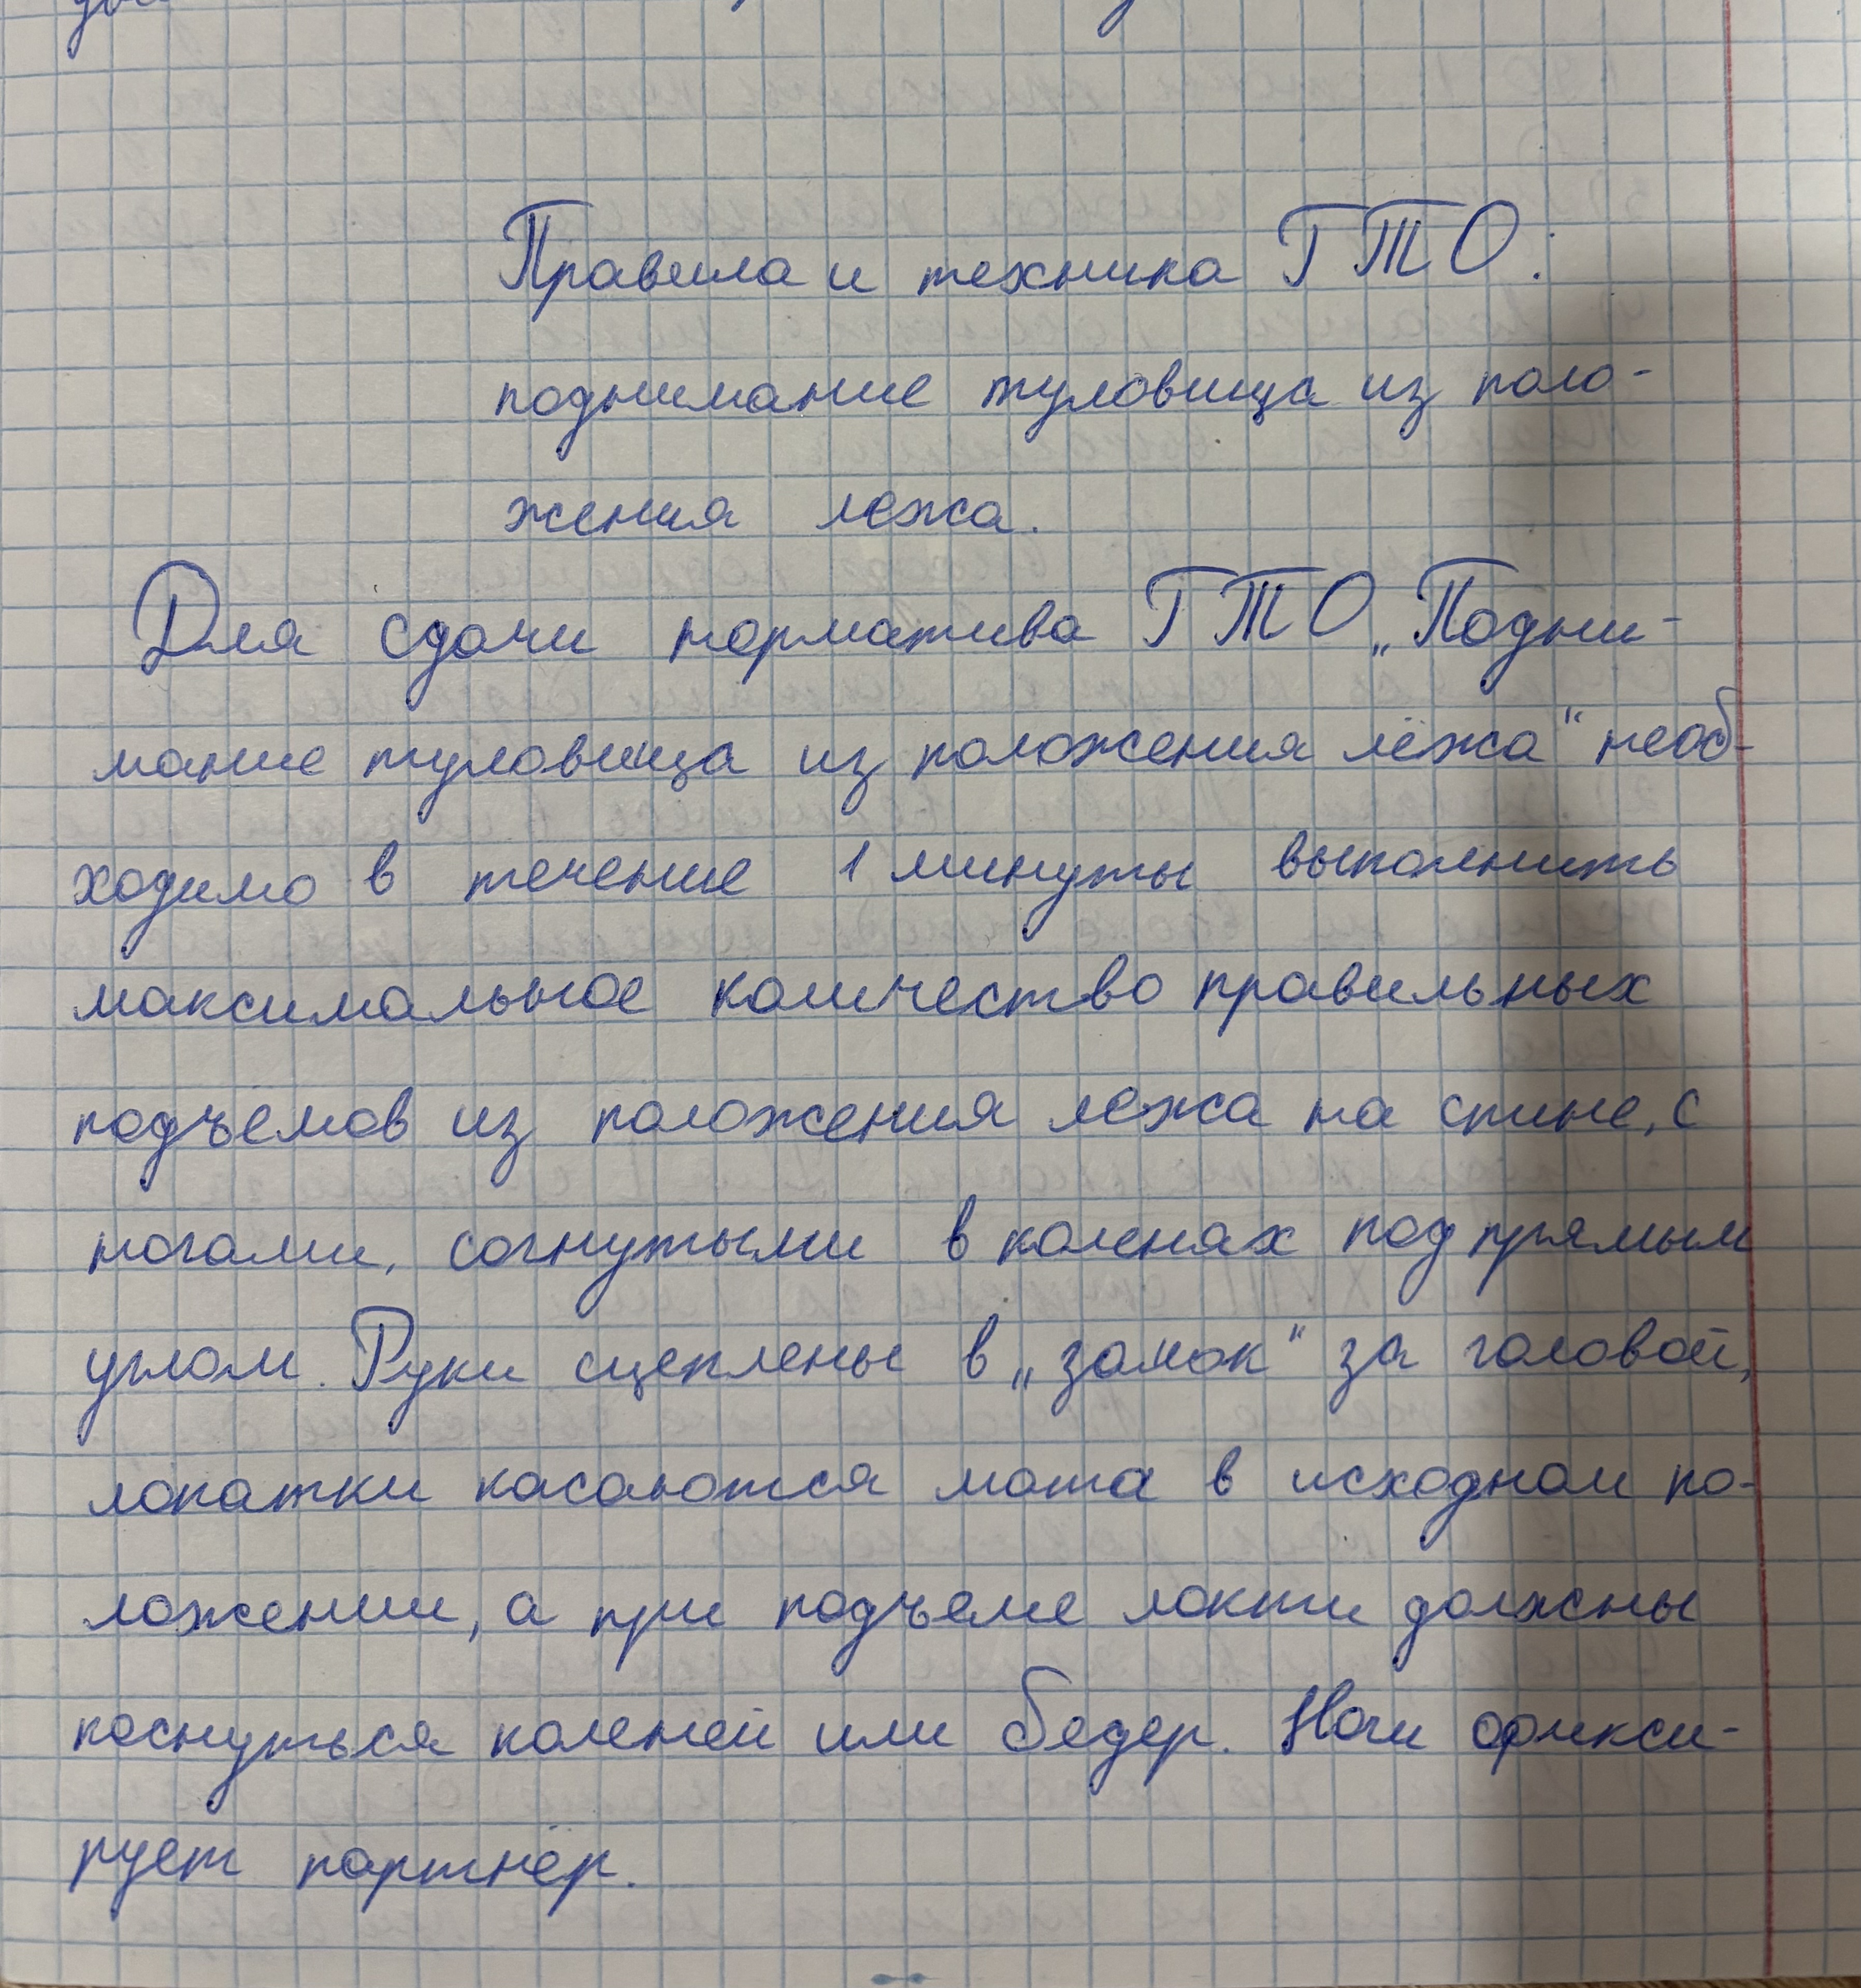 Правила и техника ГТО:
поднимание туловища из поло-
жения лежа.
Для сдачи норматива ГТО „Подни-
мание туловища из положения лёжа“ необ-
ходимо в течение 1 минуты выполнить
максимальное количество правильных
подъемов из положения лежа на спине, с
ногами, согнутыми в коленях под прямым
углом. Руки сцеплены в „замок“ за головой,
лопатки касаются мата в исходном по-
ложении, а при подъеме локти должны
коснуться коленей или бедер. Ноги фикси-
рует партнёр.